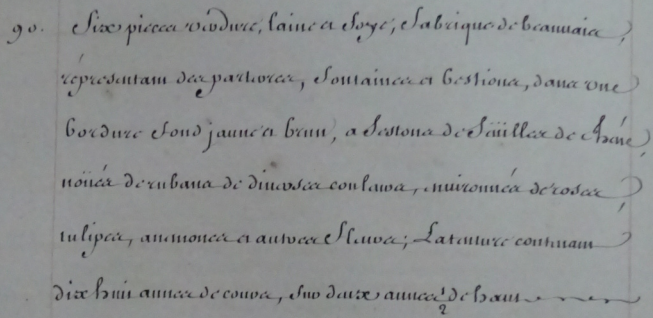 90. Six pieces verdure, laine et soye, fabrique de beauvais,
répresentant des parterres, fontaines et bestions, dans une
bordure fond jaune et brun, a festons de feüilles de chéne,
noüés de rubans de diverses couleurs, environnés de roses,
tulipes, anemones et autres fleurs; La tenture contenant
dix huit aunes de cours, sur deux aunes 1/2 de haut